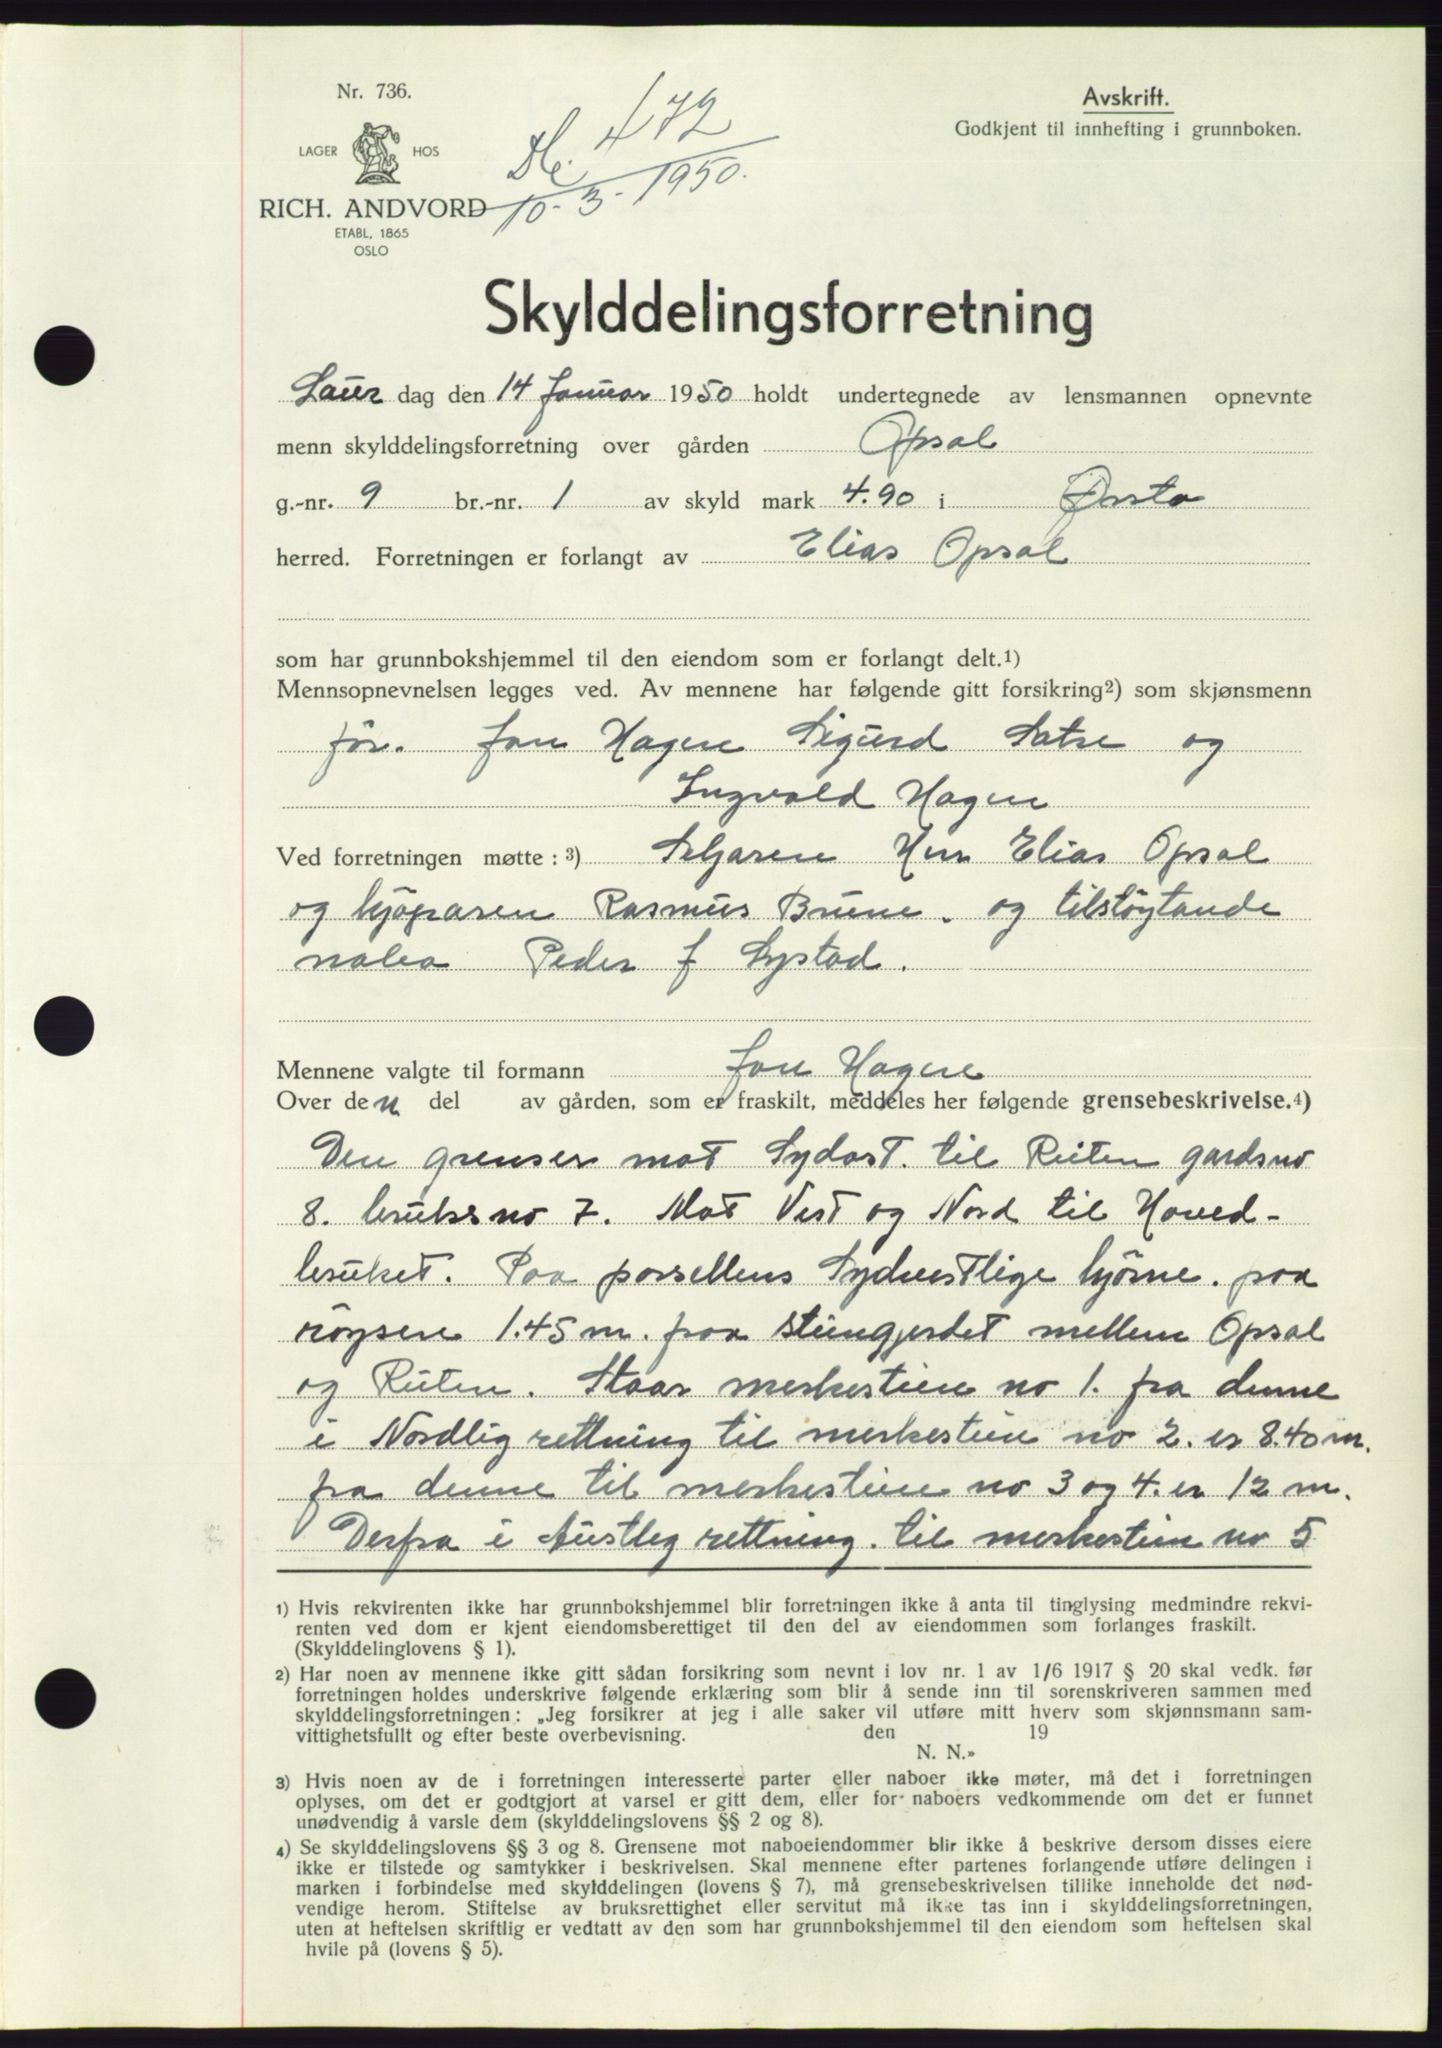 Nr. 736.
LAGER HOS
RICH. ANDVORD
ETABL. 1865
OSLO
472
10-3-1950.
Avskrift.
Godkjent til innhefting i grunnboken.
Skylddelingsforretning
Laur dag den 14 Januar 1950 holdt undertegnede av lensmannen opnevnte
menn skylddelingsforretning over gården Opsal
g.-nr. 9 br.-nr. 1 av skyld mark 4.90 i Ørsta
herred. Forretningen er forlangt av Elias Opsal
som har grunnbokshjemmel til den eiendom som er forlangt delt.1)
Mennsopnevnelsen legges ved. Av mennene har følgende gitt forsikring2) som skjønsmenn
för. Jon Hagen Sigurd Satre og
Ingvald Hagen
Ved forretningen møtte: 3) Seljaren Herr Elias Opsal
og kjöparen Rasmus Brune. og tilstöytande
nabo Peder J Systad.
Mennene valgte til formann Jon Hagen
Over den del av gården, som er fraskilt, meddeles her følgende grensebeskrivelse.4)
Den grenser mot Sydost. til Reiten gardsno
8. bruksno 7. Mot Vest og Nord til Hoved-
bruket. Paa porsellens Sydvestlige hjörne. paa
röysen 1.45 m. fraa steingjerdet mellem Opsal
og Reiten. Staar merkestein no 1. fra denne
i Nordlig rettning til merkestein no 2. er 8.40 m.
fra denne til merkestein no 3 og 4. er 12 m.
Derfra i Austleg rettning. til merkestein no 5
1) Hvis rekvirenten ikke har grunnbokshjemmel blir forretningen ikke å anta til tinglysing medmindre rekvi-
renten ved dom er kjent eiendomsberettiget til den del av eiendommen som forlanges fraskilt.
(Skylddelinglovens § 1).
2) Har noen av mennene ikke gitt sådan forsikring som nevnt i lov nr. 1 av 1/6 1917 § 20 skal vedk. før
forretningen holdes underskrive følgende erklæring som blir å sende inn til sorenskriveren sammen med
skylddelingsforretningen: „Jeg forsikrer at jeg i alle saker vil utføre mitt hverv som skjønnsmann sam-
vittighetsfullt og efter beste overbevisning. den 19
N. N.»
3) Hvis noen av de i forretningen interesserte parter eller naboer ikke møter, må det i forretningen
oplyses, om det er godtgjort at varsel er gitt dem, eller for naboers vedkommende om det er funnet
unødvendig å varsle dem (skylddelingslovens §§ 2 og 8).
4) Se skylddelingslovens §§ 3 og 8. Grensene mot naboeiendommer blir ikke å beskrive dersom disses eiere
ikke er tilstede og samtykker i beskrivelsen. Skal mennene efter partenes forlangende utføre delingen i
marken i forbindelse med skylddelingen (lovens § 7), må grensebeskrivelsen tillike inneholde det nød-
vendige herom. Stiftelse av bruksrettighet eller servitut må ikke tas inn i skylddelingsforretningen,
uten at heftelsen skriftlig er vedtatt av den som har grunnbokshjemmel til den eiendom som heftelsen skal
hvile på (lovens § 5).